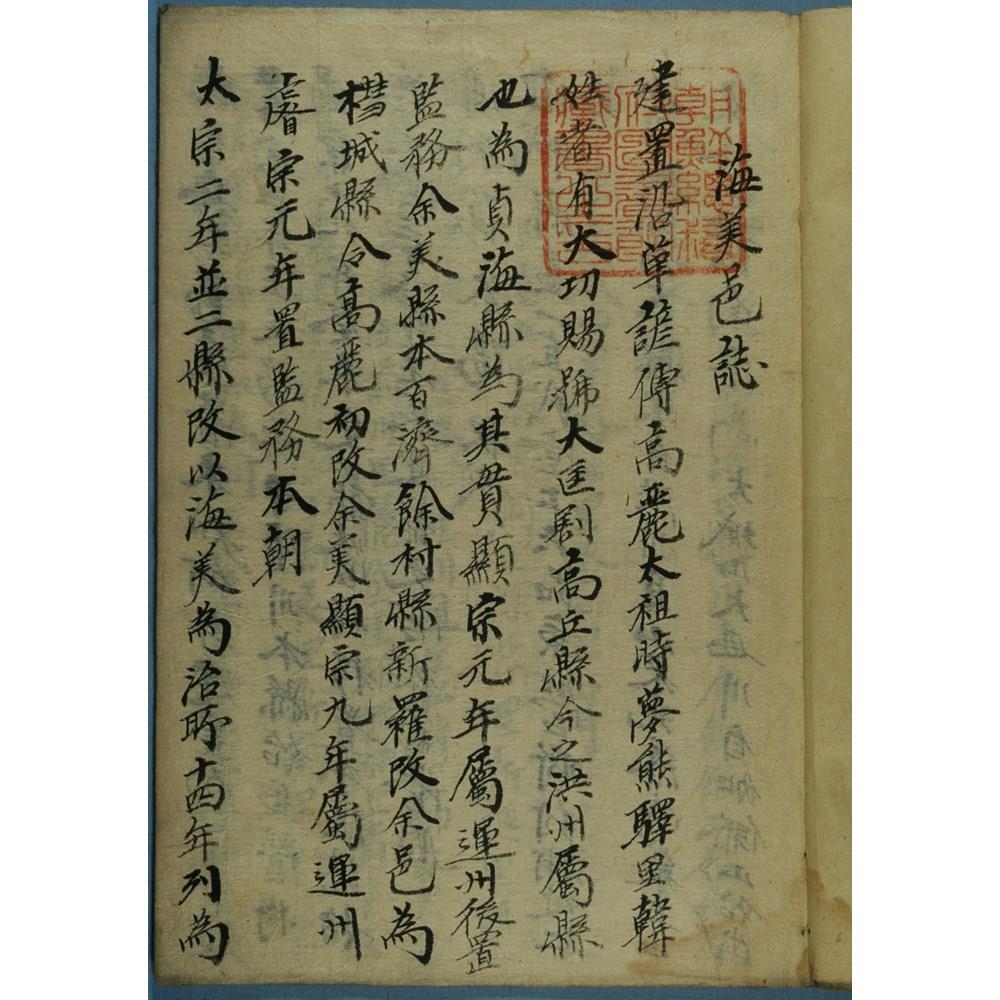 海美邑誌
建置沿革諺傳高麗太祖時夢熊驛吏韓
姓者有大功賜號大匡割高丘縣今之洪州屬縣
也為貞海縣為其貫顯宗元年屬運州後置
監務余美縣本百濟餘村縣新羅改余邑為
槥城縣令高麗初改余美顯宗九年屬運州
睿宗元年置監務本朝
太宗二年並二縣改以海美為治所十四年列為